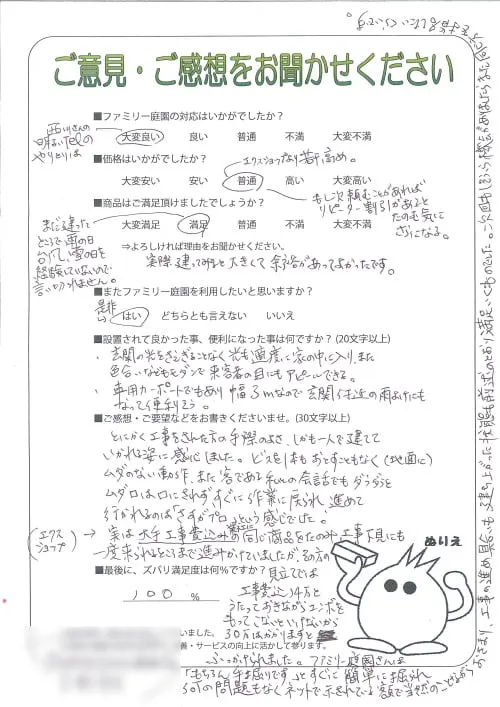 ご意見・ご感想をお聞かせください
■ファミリー庭園の対応はいかがでしたか？
大変良い 良い 普通 不満 大変不満
西川さんの
明るいTELの
やりとりは
■価格はいかがでしたか？
エクスショップより若干高め。
大変安い 安い 普通 高い 大変高い
もし次頼むことがあれば
リピーター割引があると
たのも気に
さになる。
■商品はご満足頂けましたでしょうか？
大変満足 満足 普通 不満 大変不満
まだ建った
ところで雨の日
台風、雪の日を
経験していないので
言いきれません。
⇒よろしければ理由をお聞かせください。
実際建って結構大きくて余裕があってよかったです。
■またファミリー庭園を利用したいと思いますか？
是非
はい どちらとも言えない いいえ
■設置されて良かった事、便利になった事は何ですか？(20文字以上)
・玄関の光をさえぎることなく光も適度に家の中に入り、また
色合いなどもモダンで来客者の目にもアピールできる。
・車用カーポートでもあり幅3mなので玄関付近の雨よけにも
なって便利そう。
■ご感想・ご要望などをお書きくださいませ。(30文字以上)
とにかく工事をされた方の手際のよさ、しかも一人で建てて
いかれる姿に感心しました。ビスを1本もおとすこともなく(地面に)
ムダのない動作、また客である私との会話でもダラダラと
ムダ口は口にされずすぐに作業に戻られ、進めて
行かれるのは「さすがプロ」という感じでした。
(エクスショップ)→実は大手工事費込みの同じ商品をたのみ、工事下見にも
一度来られるところまで進みかけていましたが、その方の
見立てでは
■最後に、ズバリ満足度は何％ですか？
100 %
工事費込14万と
うたっておきながらユンボを
もってこないといけないから
30万はかかりますと
ふっかけられました。ファミリー庭園さんは
「もちろん手掘りです」とすぐに簡単に掘られ
何の問題もなくネットで示されている額で当然のことながら
ぬりえ
いました。
善・サービスの向上に活かして参ります。